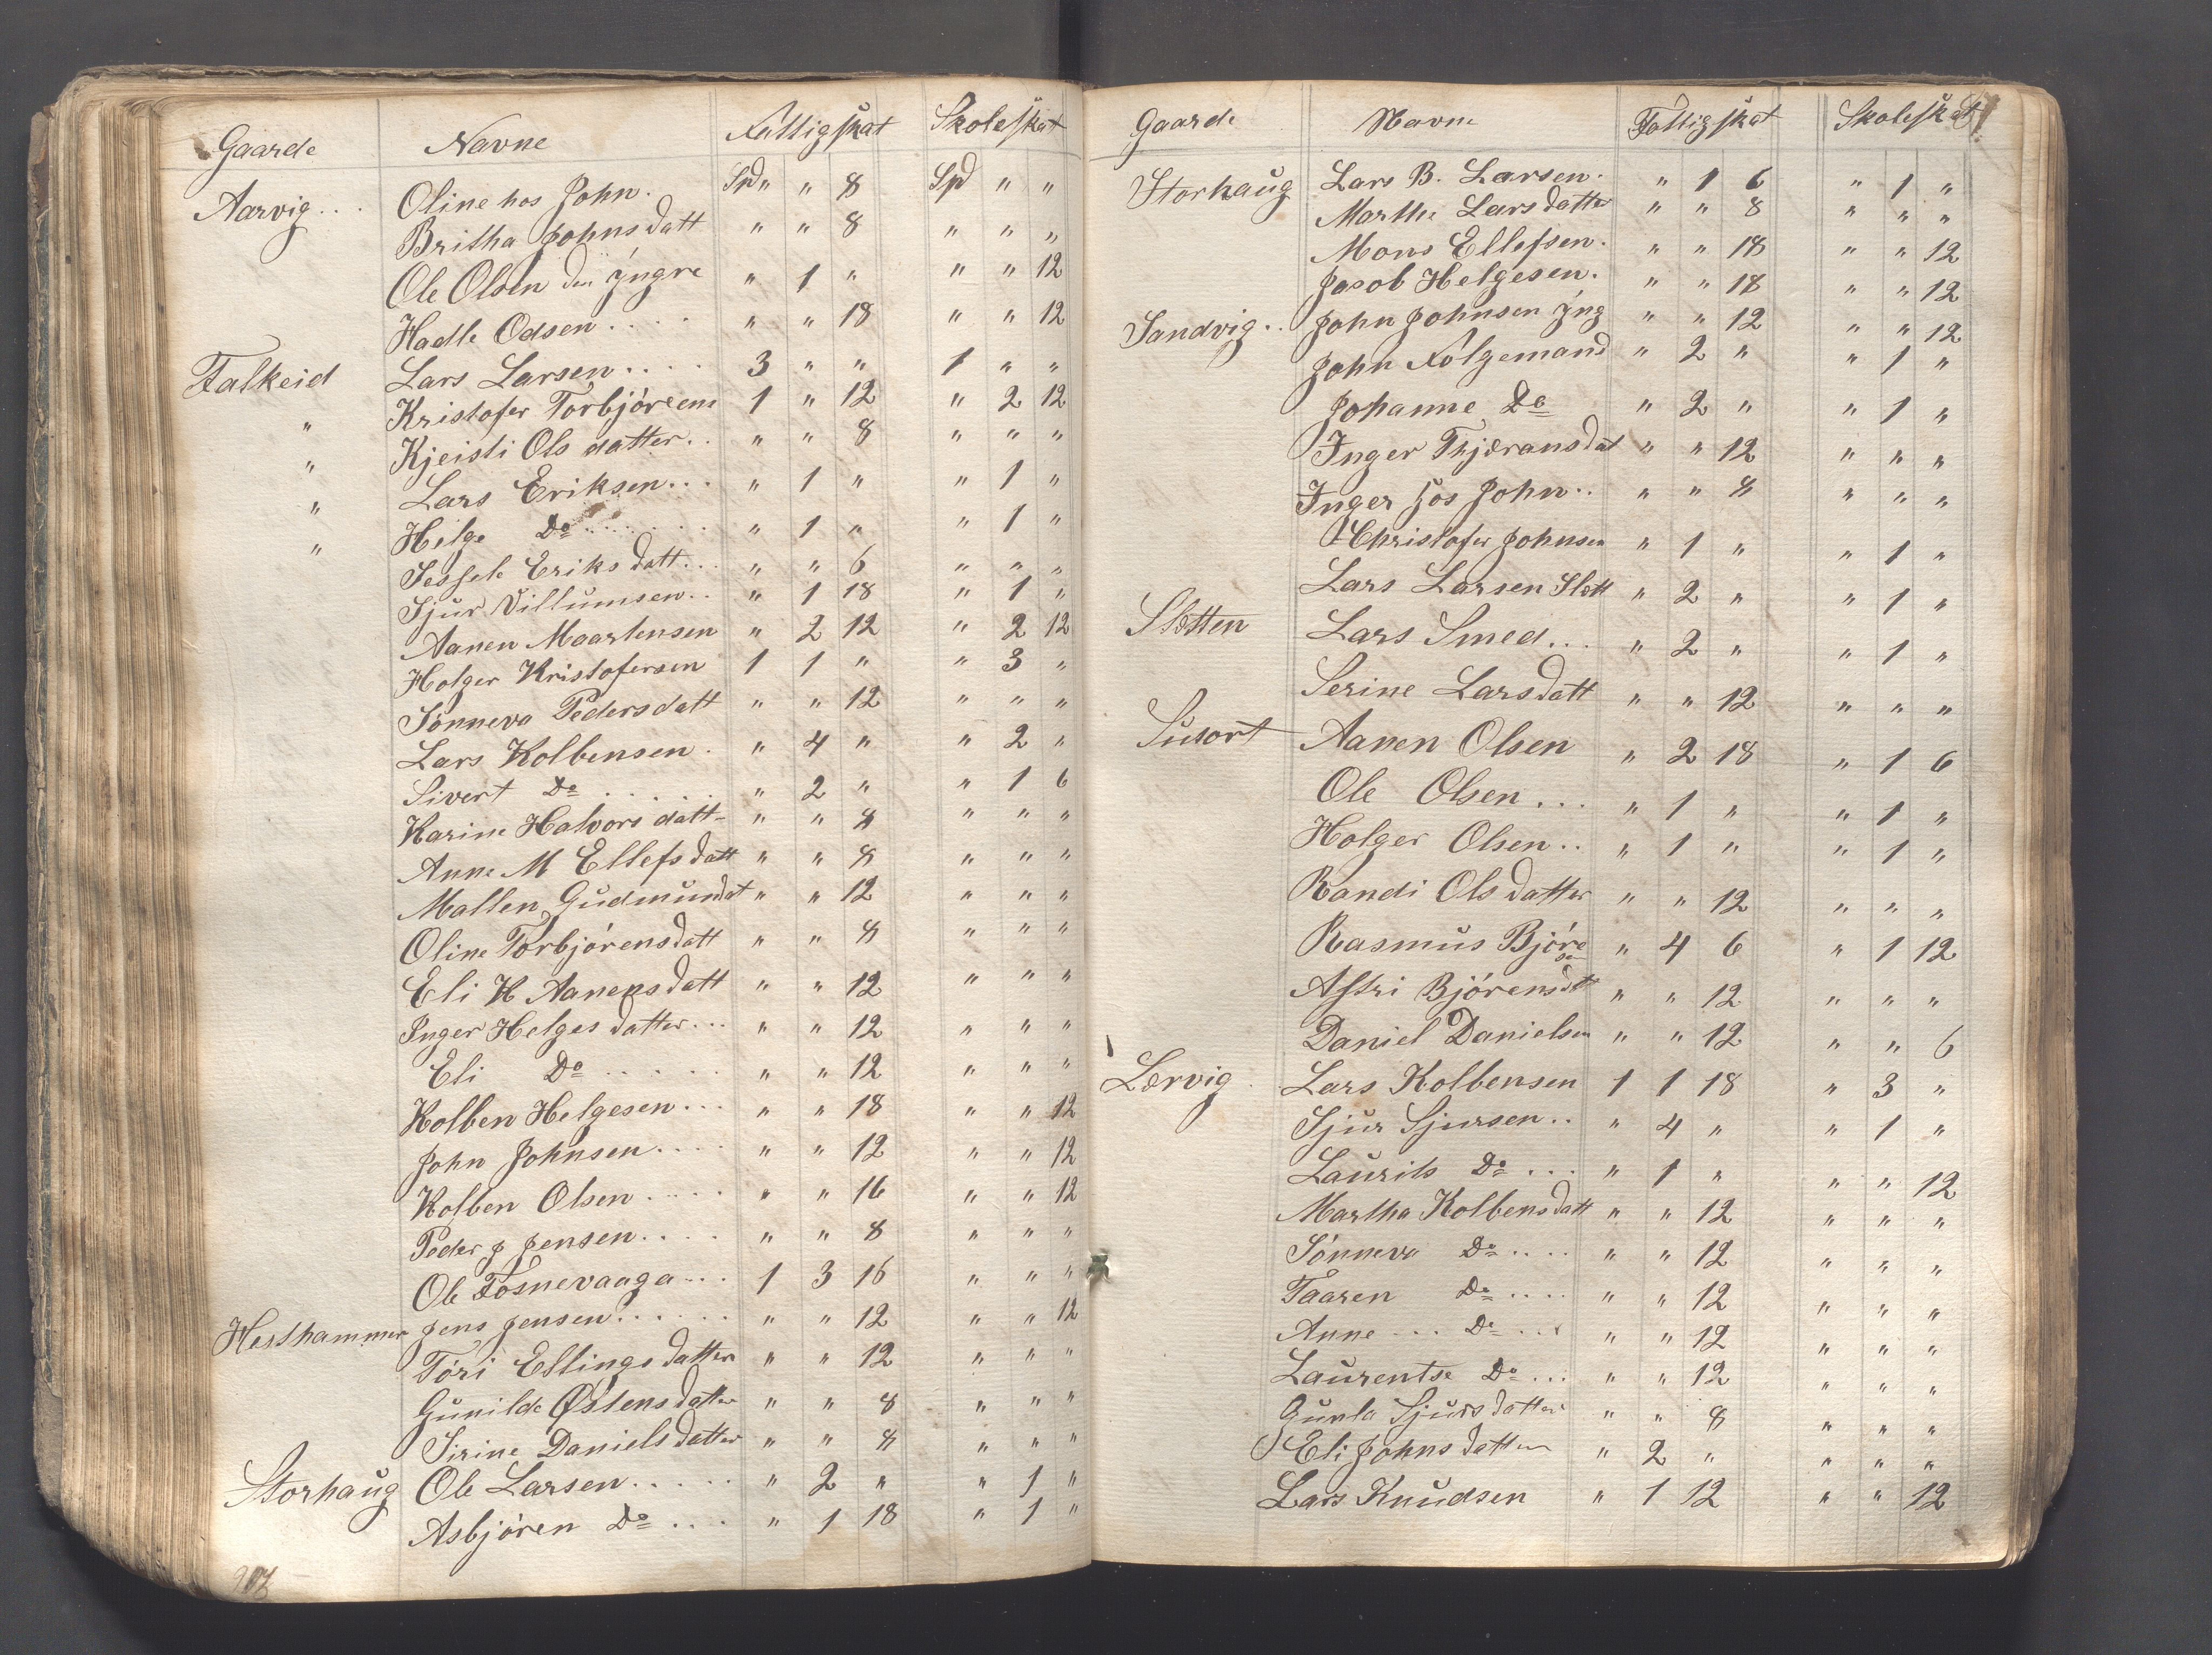 Gaarde Navne Fattigskat Skoleskat
Aarvig... Oline hos John. Spd " " 8 Spd " "
Britha Johnsdatt " " 8 " " "
Ole Olsen den Yngre " 1 " " " 12
Hadle Odsen.... " " 18 " " 12
Falkeid Lars Larsen.... 3 " " 1 " "
" Kristofer Torbjörens 1 " 12 " 2 12
" Kjeisti Olsdatter.. " " 8 " " "
" Lars Eriksen... " 1 " " 1 "
" Helge Do....... " 1 " " 1 "
Sessele Eriksdatt... " " 6 " " "
Sjur Villumsen.. " 1 18 " 1 "
Aanen Maartensen " 2 12 " 2 12
Holger Kristofersen 1 1 " " 3 "
Sönneva Pedersdatt " " 12 " " "
Lars Kolbensen. " 4 " " 2 "
Sivert Do...... " 2 " " 1 6
Karine Halvorsdatt- " " 8 " " "
Anne M Ellefsdatt " " 8 " " "
Mallen Gudmundat " " 12 " " "
Oline Torbjörensdatt " " 8 " " "
Eli H Aanensdatt " " 12 " " "
Inger Helgesdatter... " " 12 " " "
Eli Do..... " " 12 " " "
Kolben Helgesen... " " 18 " " 12
John Johnsen.... " " 12 " " 12
Kolben Olsen..... " " 16 " " 12
Peder J Jensen.... " " 8 " " "
Ole Fosnevaaga... 1 3 16 " " "
Hesthammer Jens Jensen...... " " 12 " " 12
Töri Ellingsdatter " " 12 " " "
Gunilde Østensdatter " " 8 " " "
Sirine Danielsdatter " " 8 " " "
Storhaug Ole Larsen..... " 2 " " 1 "
Asbjören Do.... " 1 18 " 1 "
Gaarde Navne Fattigskat Skoleskat
Storhaug Lars B. Larsen. " 1 6 " 1 "
Marthe Larsdatter " " 8 " " "
Mons Ellefsen. " " 18 " " 12
Jacob Helgesen. " " 18 " " 12
Sandvig.. John Johnsen Yng " " 12 " " 12
John Fölgemand " 2 " " 1 "
Johanne Do " 2 " " 1 "
Inger Thjæransdat " " 12 " " "
Inger hos John.. " " 8 " " "
Christofer Johnsen " 1 " " 1 "
Lars Larsen Slett " 2 " " 1 "
Sletten Lars Smed... " 2 " " 1 "
Serine Larsdatt " " 12 " " "
Susort Aanen Olsen " 2 18 " 1 6
Ole Olsen... " 1 " " 1 "
Holger Olsen.. " 1 " " 1 "
Randi Olsdatter " " 12 " " "
Rasmus Björe
sen " 4 6 " 1 12
Astri Björensdt " " 12 " " "
Daniel Danielsen " " 12 " " 6
Lervig. Lars Kolbensen 1 1 18 " 3 "
Sjur Sjursen.. " 4 " " 1 "
Laurits Do... " 1 " " " 12
Martha Kolbensdatt " " 12 " " "
Sönneva Do.... " " 12 " " "
Taaren Do.... " " 12 " " "
Anne... Do... " " 12 " " "
Laurentse Do... " " 12 " " "
Gunla Sjursdatter " " 8 " " "
Eli Johnsdatter " 2 " " " "
Lars Knudsen " 1 12 " " 12